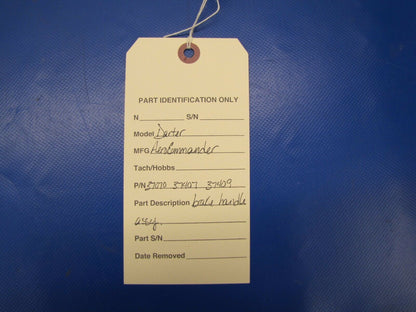 PART IDENTIFICATION ONLY
N S/N
Model Darter
MFG AeroCommander
Tach/Hobbs
P/N 37407 37409
Part Description brake handle
assy.
Part S/N
Date Removed